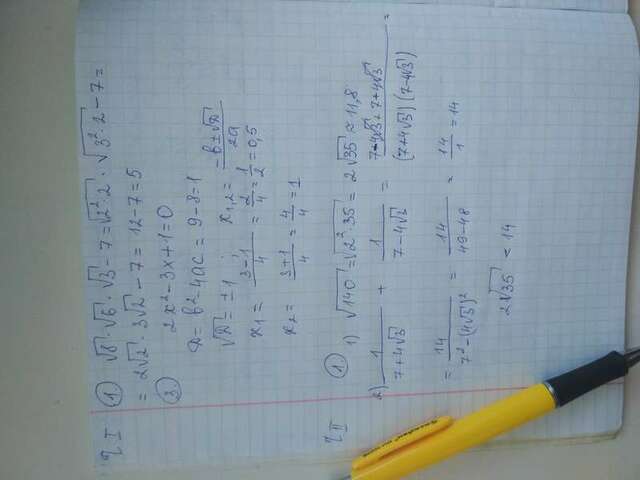 ч I ① √8 · √6 · √3 - 7 = √2²·2 · √3²·2 - 7 =
= 2√2 · 3√2 - 7 = 12 - 7 = 5
② 2x² - 3x + 1 = 0
D = b² - 4ac = 9 - 8 = 1
√D = ±1 x₁,₂ = b ± √D / 2a
x₁ = 3-1/4 = 2/4 = 1/2 = 0,5
x₂ = 3+1/4 = 4/4 = 1
ч II ① 1) √140 = √2²·35 = 2√35 ≈ 11,8
2) 1/7+4√3 + 1/7-4√3 = 7-4√3+7+4√3/(7+4√3)(7-4√3) =
= 14/7²-(4√3)² = 14/49-48 = 14/1 = 14
2√35 < 14